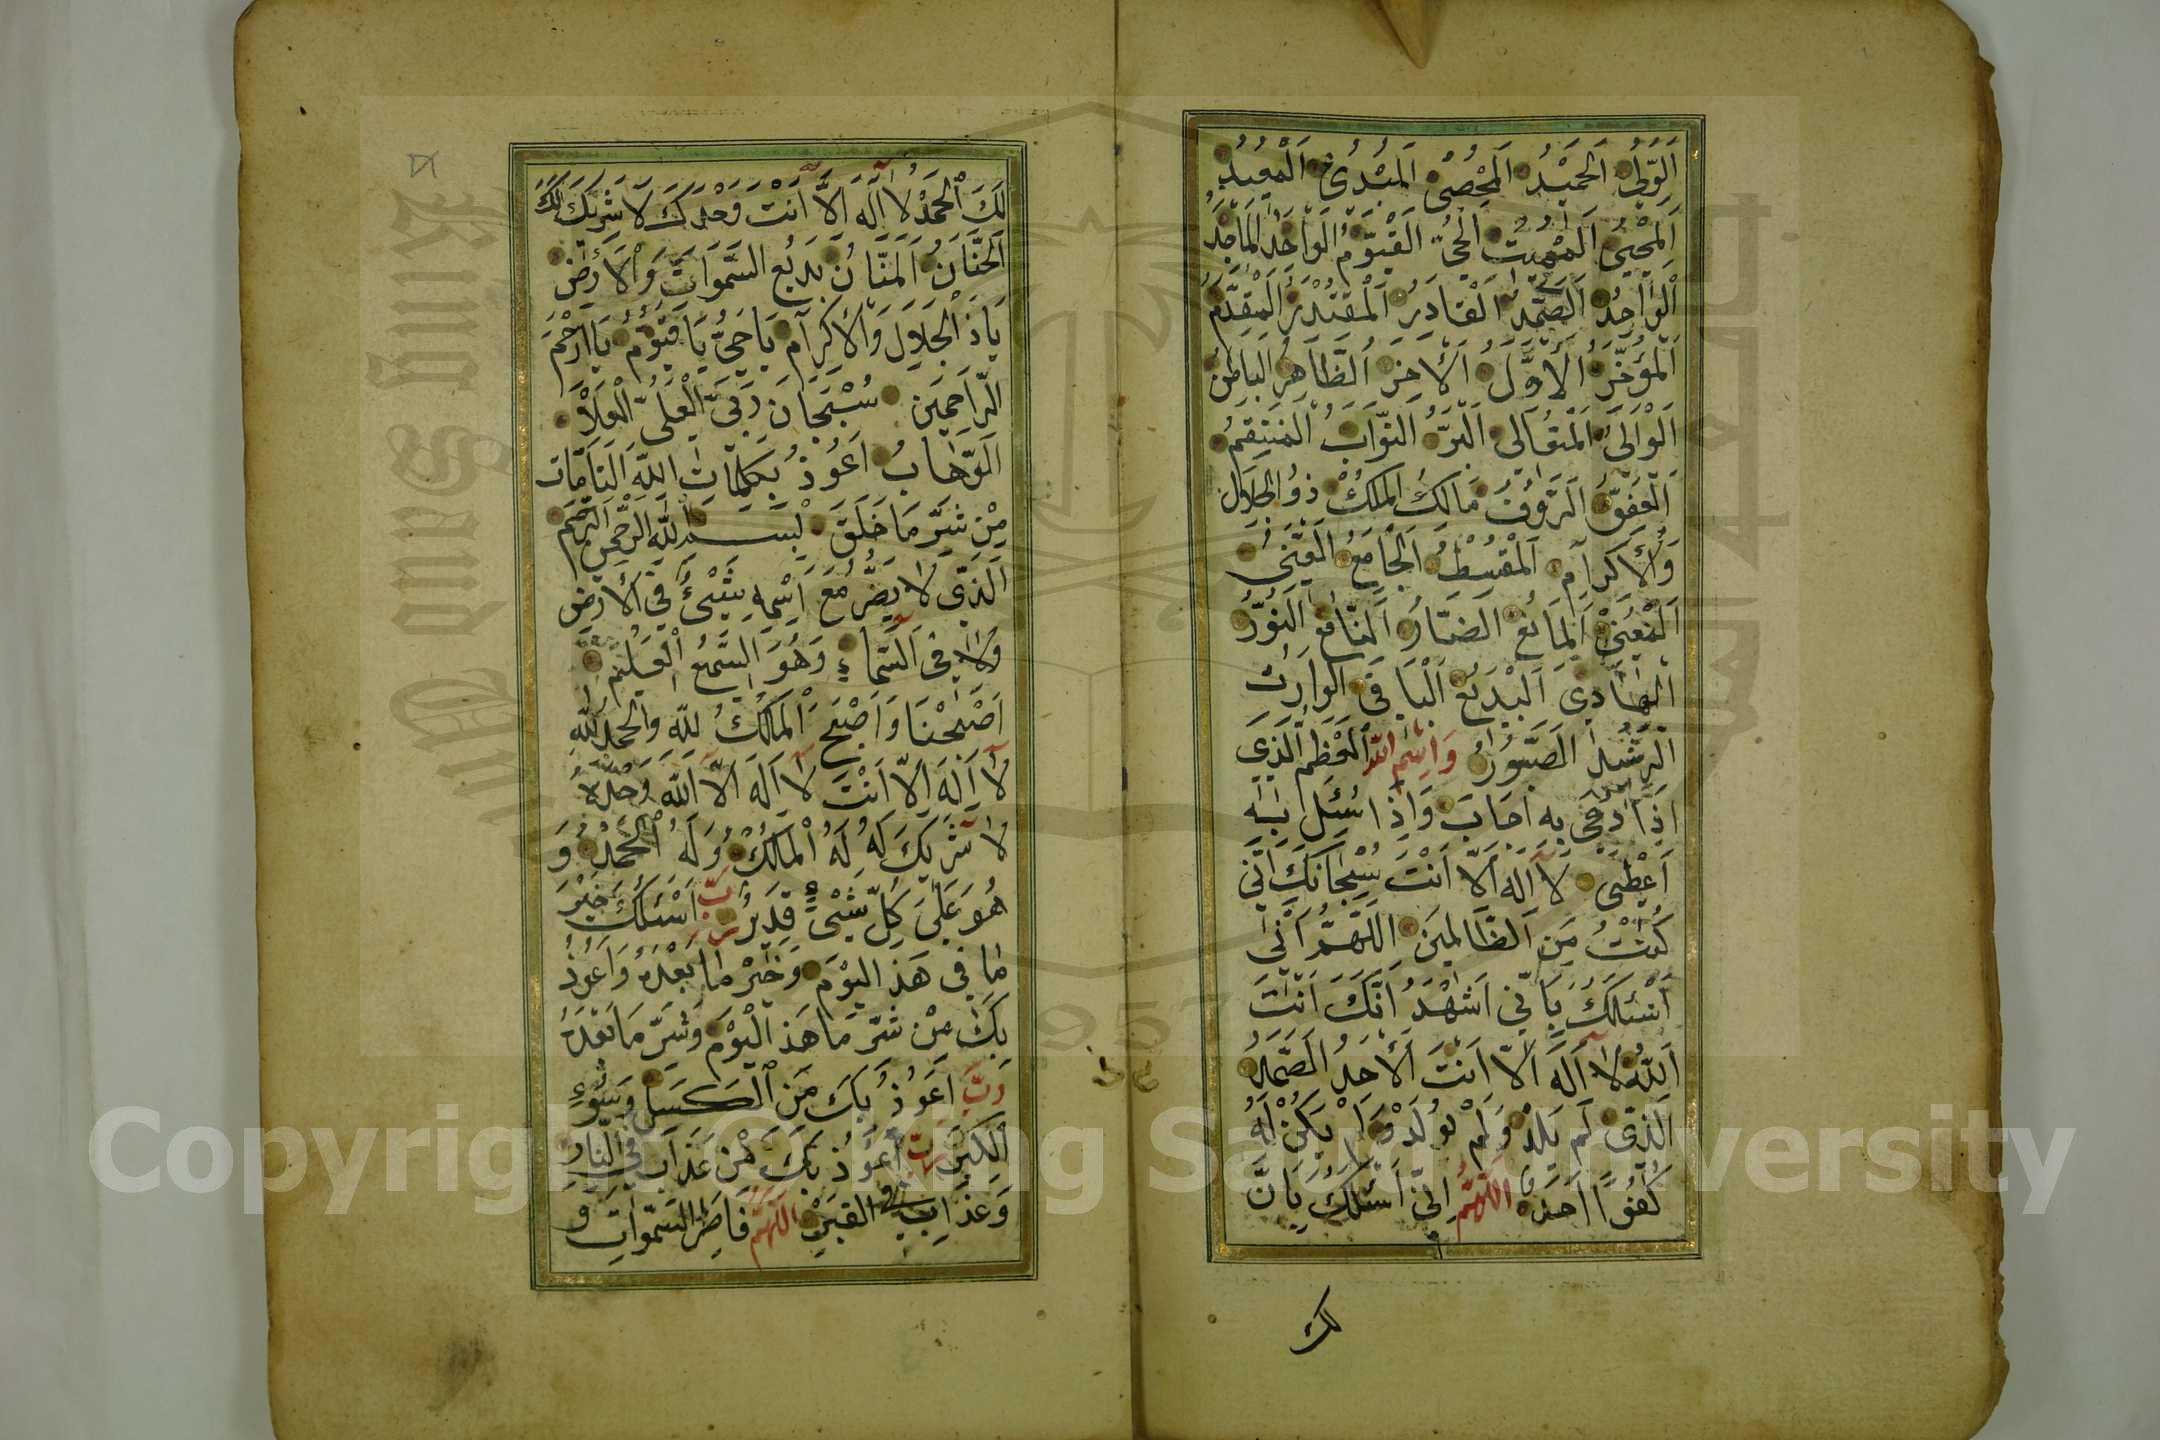 اَلْوَلِيُّ اَلْحَمِيْدُ اَلْمُحْصِىْ اَلْمُبْدِئُ اَلْمُعِيْدُ
اَلْمُحْيِىْ اَلْمُمِيْتُ اَلْحَىُّ اَلْقَيُّوْمُ اَلْوَاجِدُ اَلْمَاجِدُ
اَلْوَاحِدُ اَلصَّمَدُ اَلْقَادِرُ اَلْمُقْتَدِرُ اَلْمُقَدِّمُ
اَلْمُؤَخِّرُ اَلْاَوَّلُ اَلْاٰخِرُ اَلظَّاهِرُ اَلْبَاطِنُ
اَلْوَالِىْ اَلْمُتَعَالِى اَلْبَرُّ اَلتَّوَّابُ اَلْمُنْتَقِمُ
اَلْعَفُوُّ اَلرَّؤُفُ مَالِكُ الْمُلْكِ ذُو الْجَلَالِ
وَالْاَكْرَامِ اَلْمُقْسِطُ اَلْجَامِعُ اَلْغَنِىُّ
اَلْمُغْنِىْ اَلْمَانِعُ اَلضَّارُّ اَلنَّافِعُ اَلنُّوْرُ
اَلْهَادِىْ اَلْبَدِيْعُ اَلْبَاقِى الْوَارِثُ
اَلرَّشِيْدُ اَلصَّبُوْرُ وَاِسْمِ اللّٰهِ الْعَظَمِ الَّذِى
اِذَا دُعِىَ بِهِ اَجَابَ وَاِذَا سُئِلَ بِهِ
اَعْطٰى لَا اِلٰهَ اِلَّا اَنْتَ سُبْحَانَكَ اِنِّى
كُنْتُ مِنَ الظَّالِمِيْنَ اَللّٰهُمَّ اِنِّى
اَسْئَلُكَ بِاَنِّى اَشْهَدُ اَنَّكَ اَنْتَ
اَللّٰهُ لَا اِلٰهَ اِلَّا اَنْتَ اَلْاَحَدُ الصَّمَدُ
اَلَّذِى لَمْ يَلِدْ وَلَمْ يُوْلَدْ وَلَمْ يَكُنْ لَهُ
كُفُوًا اَحَدٌ اَللّٰهُمَّ اِنِّى اَسْئَلُكَ بِاَنَّ
لك
لَكَ الْحَمْدُ لَا اِلٰهَ اِلَّا اَنْتَ وَحْدَكَ لَا شَرِيْكَ لَكَ
اَلْحَنَّانُ اَلْمَنَّانُ بَدِيْعُ السَّمٰوَاتِ وَالْاَرْضِ
يَا ذَ الْجَلَالِ وَالْاِكْرَامِ يَا حَىُّ يَا قَيُّوْمُ يَا اَرْحَمَ
الرَّاحِمِيْنَ سُبْحَانَ رَبِّىَ الْعَلِىِّ الْعَلَاْ
اَلْوَهَّابُ اَعُوْذُ بِكَلِمَاتِ اللّٰهِ التَّامَّاتِ
مِنْ شَرِّ مَا خَلَقَ بِسْمِ اللّٰهِ الرَّحْمٰنِ الرَّحِيْمِ
اَلَّذِى لَا يَضُرُّ مَعَ اسْمِهِ شَيْئٌ فِى الْاَرْضِ
وَلَا فِى السَّمَاءِ وَهُوَ السَّمِيْعُ الْعَلِيْمُ
اَصْبَحْنَا وَاَصْبَحَ الْمُلْكُ لِلّٰهِ وَالْحَمْدُ لِلّٰهِ
لَا اِلٰهَ اِلَّا اَنْتَ لَا اِلٰهَ اِلَّا اللّٰهُ وَحْدَهُ
لَا شَرِيْكَ لَهُ لَهُ الْمُلْكُ وَلَهُ الْحَمْدُ وَ
هُوَ عَلٰى كُلِّ شَيْئٍ قَدِيْرٌ رَبِّ اَسْئَلُكَ خَيْرَ
مَا فِى هَذَ الْيَوْمِ وَخَيْرَ مَا بَعْدَهُ وَاَعُوْذُ
بِكَ مِنْ شَرِّ مَا هَذَ الْيَوْمِ وَشَرِّ مَا بَعْدَهُ
رَبِّ اَعُوْذُ بِكَ مِنَ الْكَسَلِ وَسُوْءِ
الْكِبَرِ رَبِّ اَعُوْذُ بِكَ مِنْ عَذَابٍ فِى النَّارِ
وَعَذَابٍ فِى الْقَبْرِ اَللّٰهُمَّ فَاطِرَ السَّمٰوَاتِ وَ
King Saud University
1957
Copyright © King Saud University